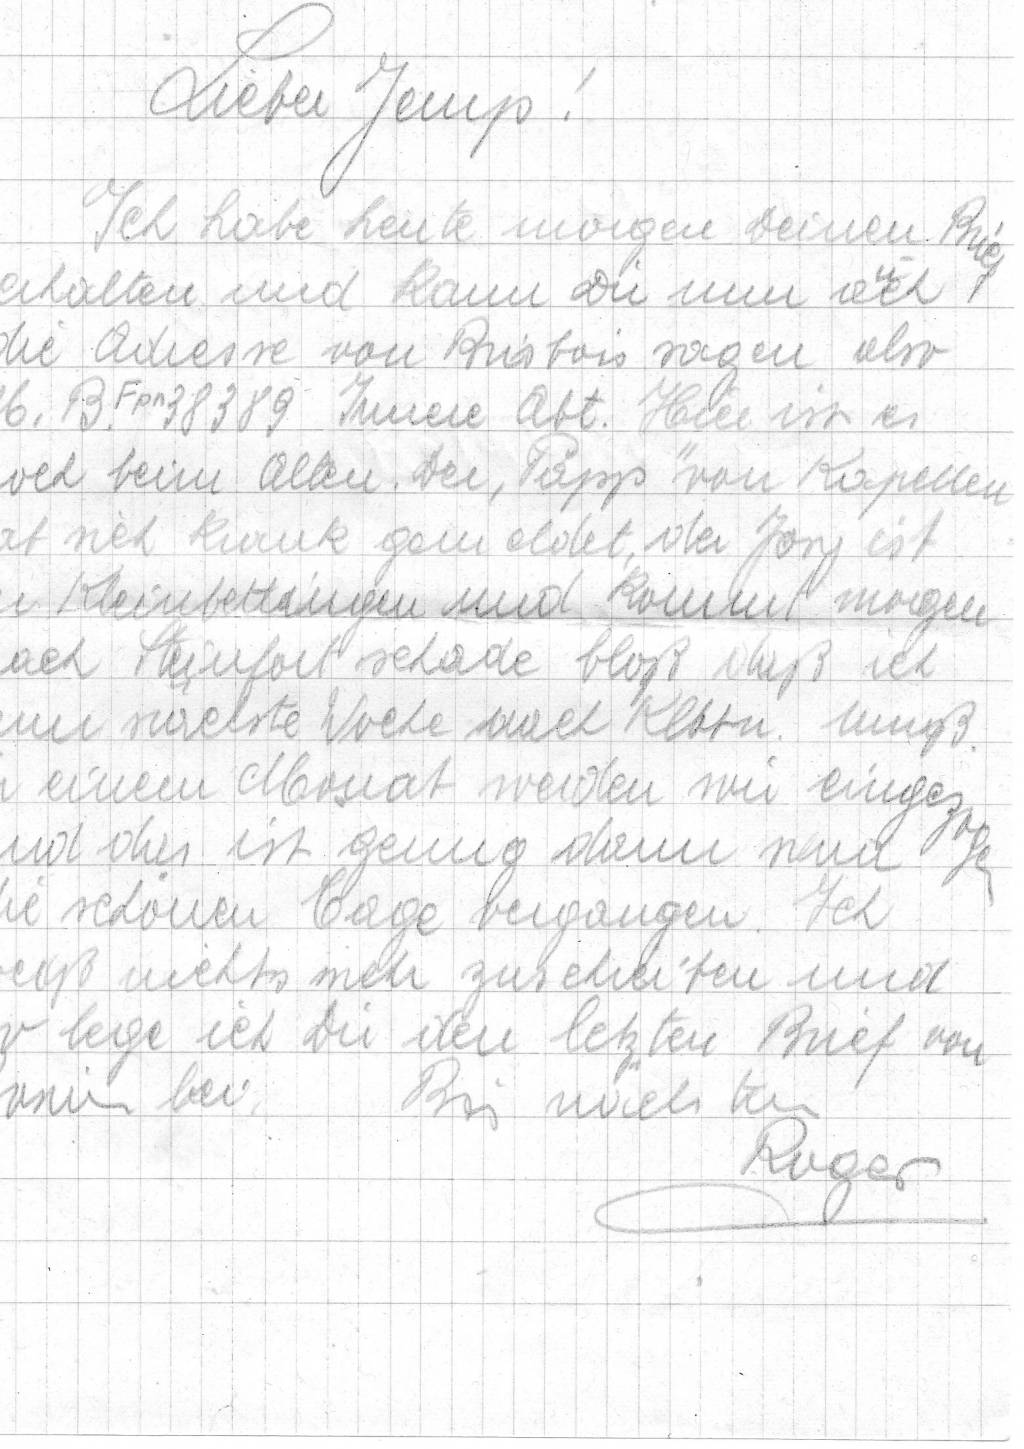 Lieber Jemp!
Ich habe heute morgen deinen Brief
erhalten und kann Dir nun auch
die Adresse von Brisbois sagen also
B. Fpn 38389 Innere Abt. Hier ist es
noch beim Alten. Der „Papp" von Kapellen
hat sich krank gemeldet, der Josy ist
in Kleinbettingen und kommt morgen
nach Steinfort schade bloß daß ich
nächste Woche nach muß.
in einem Monat werden wir eingezogen
und das ist genug dann sind
die schönen Tage vergangen. Ich
weiß nichts mehr zuschreiben und
so lege ich Dir den letzten Brief von
bei. Bis nächsten
Roger